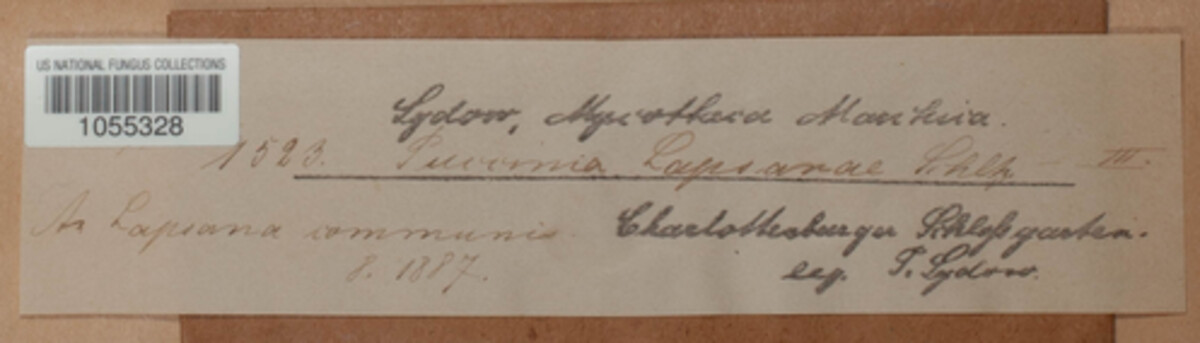 US NATIONAL FUNGUS COLLECTIONS
1055328
Sydow, Mycotheca Marchica.
1523. Puccinia Lapsanae Schltz III.
An Lapsana communis. Charlottenburger Schloßgarten.
8. 1887. leg. P. Sydow.